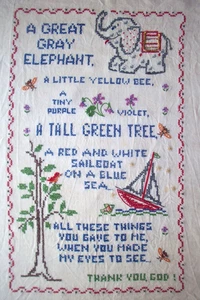 A GREAT
GRAY
ELEPHANT,
A LITTLE YELLOW BEE,
A
TINY
PURPLE VIOLET,
A TALL GREEN TREE,
A RED AND WHITE
SAILBOAT
ON A BLUE
SEA..
ALL THESE THINGS
YOU GAVE TO ME,
WHEN YOU MADE
MY EYES TO SEE..
THANK YOU, GOD!